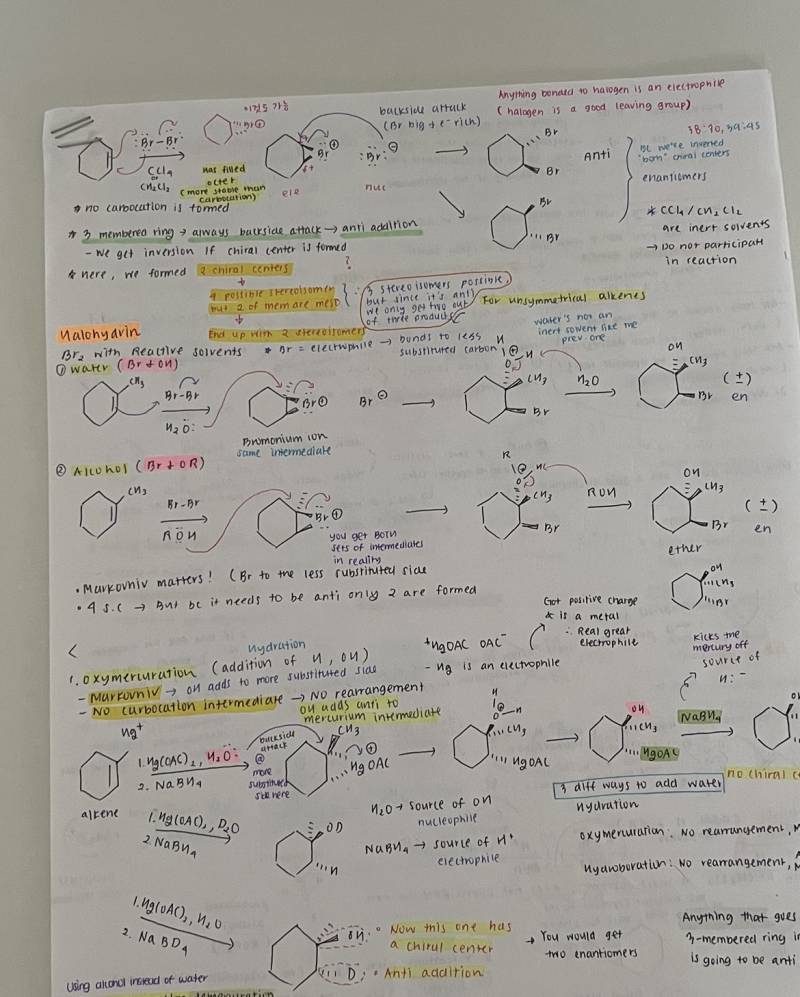 Anything bonded to halogen is an electrophile
(halogen is a good leaving group)
이것도 가능
backside attack
(Br big + e⁻ rich)
38:70, 39:45
:Br-Br:
Br⊕
Br⊕
:Br:⊖
Br
Br
Anti
BC we're inverted
"born" chiral centers
CCl4
or
CH2Cl2
has filled
octet
(more stable than
carbocation)
δ+
ele
nuc
enantiomers
* no carbocation is formed
Br
Br
* CCl4/CH2Cl2
are inert solvents
→ Do not participate
in reaction
* 3 membered ring → always backside attack → anti addition
- We get inversion if chiral center is formed
* here, we formed 2 chiral centers
?
4 possible stereoisomers
but 2 of them are meso
∴ 3 stereoisomers possible,
but since it's anti
we only get two out
of three products
For unsymmetrical alkenes
End up with 2 stereoisomers
Halohydrin
Br2 with Reactive solvents
* Br = electrophile → bonds to less
substituted carbon
water's not an
inert sovent like the
prev one
① water (Br + OH)
CH3
Br-Br
H2O:
Br⊕
Br⊖
H
O-H
CH3
Br
H2O
OH
CH3
Br
(±)
en
Bromonium ion
same intermediate
② Alcohol (Br + OR)
CH3
Br-Br
ROH
Br⊕
R
CH3
Br
ROH
OH
CH3
Br
(±)
en
you get BOTH
sets of intermediates
in reality
ether
• Markovniv matters! (Br to the less substituted side
• 4 s.c → But bc it needs to be anti only 2 are formed
OH
CH3
Br
Got positive charge
& is a metal
∴ Real great
electrophile
Hydration
1. oxymercuration (addition of H, OH)
⁺HgOAC OAC⁻
- Hg is an electrophile
kicks the
mercury off
source of
H:⁻
- Markovniv → OH adds to more substituted side
- No carbocation intermediate → NO rearrangement
OH adds anti to
mercurium intermediate
Hg⁺
1. Hg(OAC)2, H2O:
2. NaBH4
backside
attack
@
more
substituted
side here
CH3
⊕
HgOAC
H
O-H
CH3
HgOAC
OH
CH3
HgOAC
NaBH4
alkene
3 diff ways to add water
no chiral c
hydration
1. Hg(OAC)2, D2O
2. NaBH4
OD
H
H2O → source of OH
nucleophile
NaBH4 → source of H⁺
electrophile
oxymercuration: No rearrangement,
Hydroboration: No rearrangement,
1. Hg(OAC)2, H2O
2. NaBD4
OH
D
• Now this one has
a chiral center
• Anti addition
→ You would get
two enantiomers
Anything that goes
3-membered ring i
is going to be anti
Using alcohol instead of water